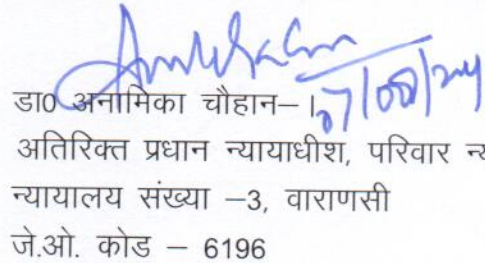 07/08/24
डा0 अनामिका चौहान–।
अतिरिक्त प्रधान न्यायाधीश, परिवार न्य
न्यायालय संख्या –3, वाराणसी
जे.ओ. कोड – 6196